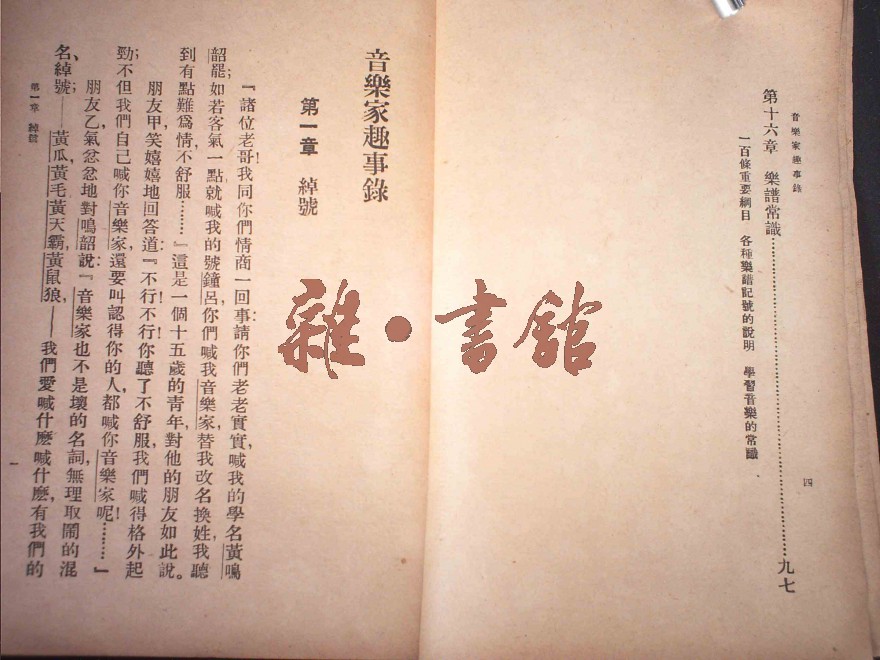 音樂家趣事錄
第十六章　樂譜常識……………………九七
一百條重要綱目　各種樂譜記號的說明　學習音樂的常識
四
音樂家趣事錄
第一章　綽號
『諸位老哥！我同你們情商一回事：請你們老老實實，喊我的學名黃鳴
韶；罷如若客氣一點就喊我的號鐘呂，你們喊我音樂家，替我改名換姓，我聽
到有點難爲情，不舒服………』這是一個十五歲的青年，對他的朋友如此說。
朋友甲笑嬉嬉地回答道：『不行！不行！你聽了不舒服，我們喊得格外起
勁；不但我們自己喊你音樂家，還要叫認得你的人，都喊你音樂家呢！………』
朋友乙氣忿忿地對鳴韶說：『音樂家也不是壞的名詞，無理取鬧的混
名、綽號；——黃瓜，黃毛，黃天霸，黃鼠狼，——我們愛喊什麽，喊什麽，有我們的
第一章　綽號
一
雜・書館